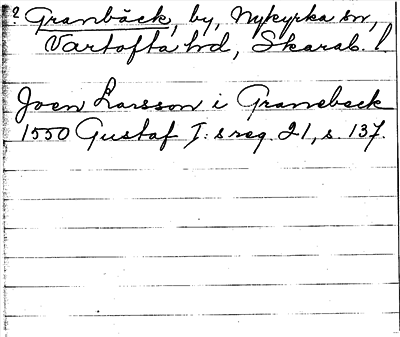 ? Granbäck, by, Nykyrka sn,
Vartofta hd, Skarab. l.
Joen Larsson i Granebeck
1550 Gustaf I: s reg. 21, s. 137.